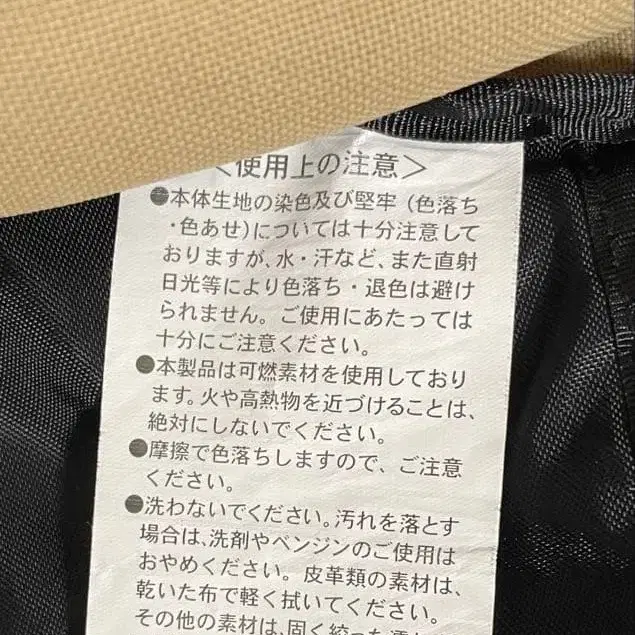 ＜使用上の注意＞
●本体生地の染色及び堅牢（色落ち
・色あせ）については十分注意して
おりますが、水・汗など、また直射
日光等により色落ち・退色は避け
られません。ご使用にあたっては
十分にご注意ください。
●本製品は可燃素材を使用しており
ます。火や高熱物を近づけることは、
絶対にしないでください。
●摩擦で色落ちしますので、ご注意
ください。
●洗わないでください。汚れを落とす
場合は、洗剤やベンジンのご使用は
おやめください。皮革類の素材は、
乾いた布で軽く拭いてください。
その他の素材は、固く絞った